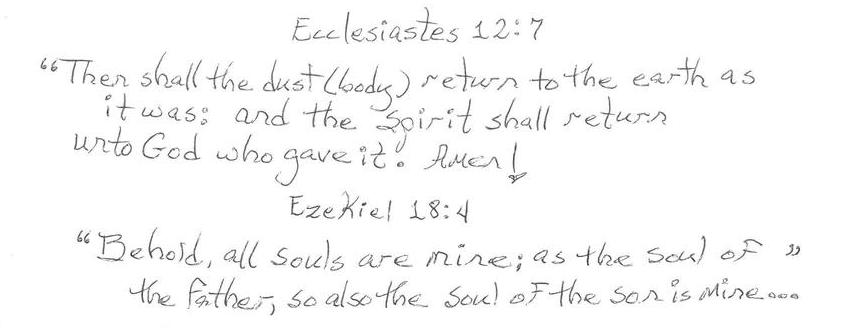 Ecclesiastes 12:7
“Then shall the dust (body) return to the earth as
it was: and the Spirit shall return
unto God who gave it! Amen!
Ezekiel 18:4
“Behold, all souls are mine; as the soul of ”
the father, so also the soul of the son is mine...